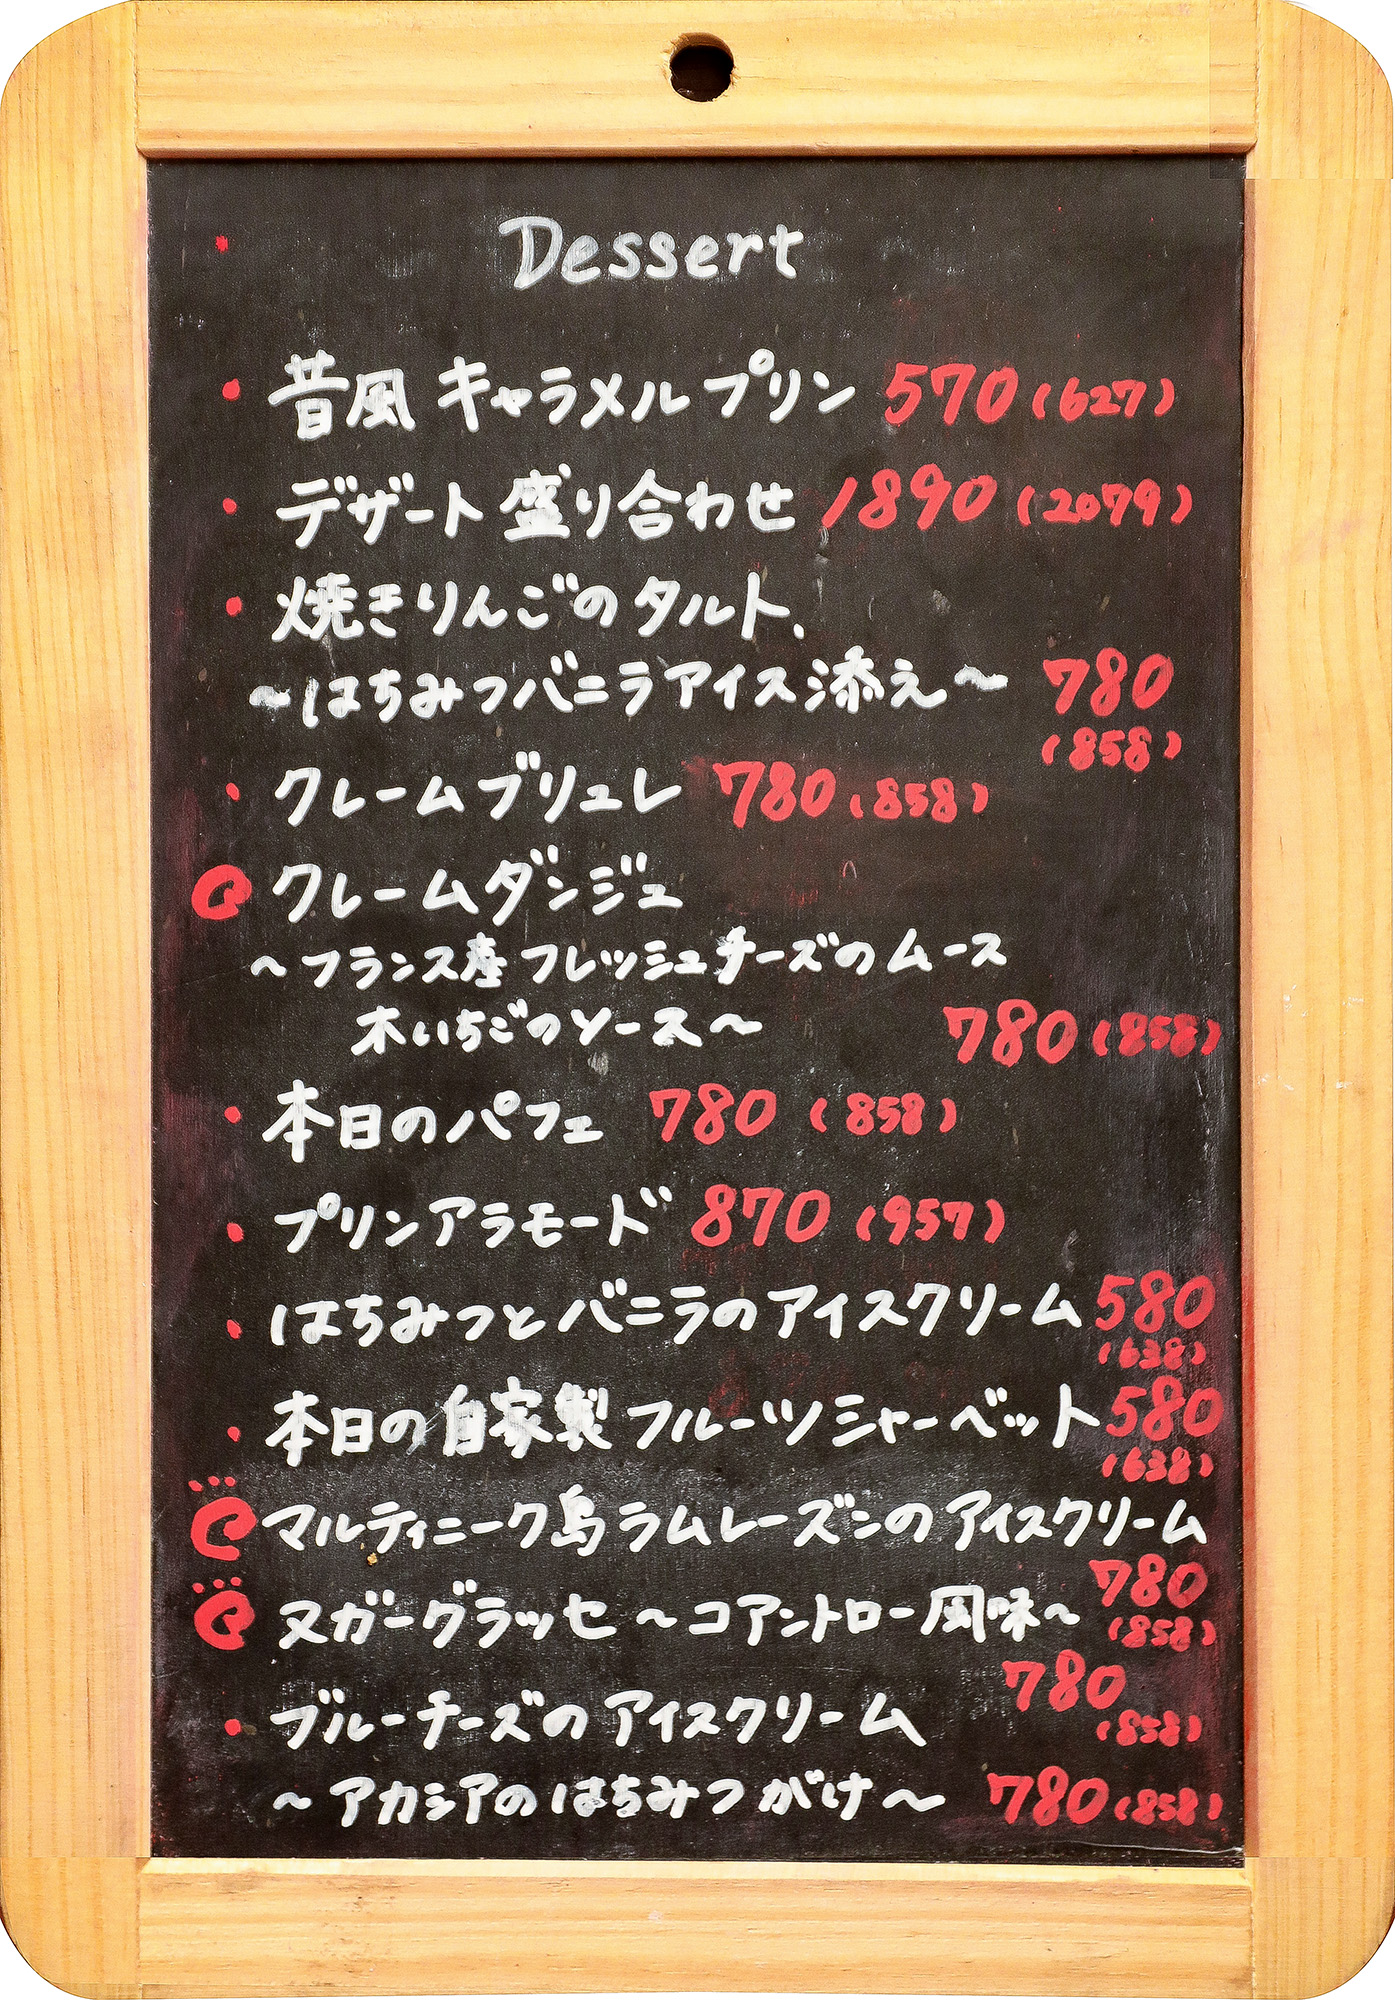 Dessert
昔風 キャラメルプリン 570 (627)
デザート 盛り合わせ 1890 (2079)
焼きりんごのタルト、
~はちみつバニラアイス添え~ 780
(858)
クレームブリュレ 780 (858)
クレームダンジュ
~フランス産フレッシュチーズのムース
木いちごのソース~ 780 (858)
本日のパフェ 780 (858)
プリンアラモード 870 (957)
はちみつとバニラのアイスクリーム 580
(638)
本日の自家製フルーツシャーベット 580
(638)
マルティニーク島ラムレーズンのアイスクリーム
780
ヌガーグラッセ ~コアントロー風味~ (858)
780
ブルーチーズのアイスクリーム (858)
~アカシアのはちみつがけ~ 780 (858)